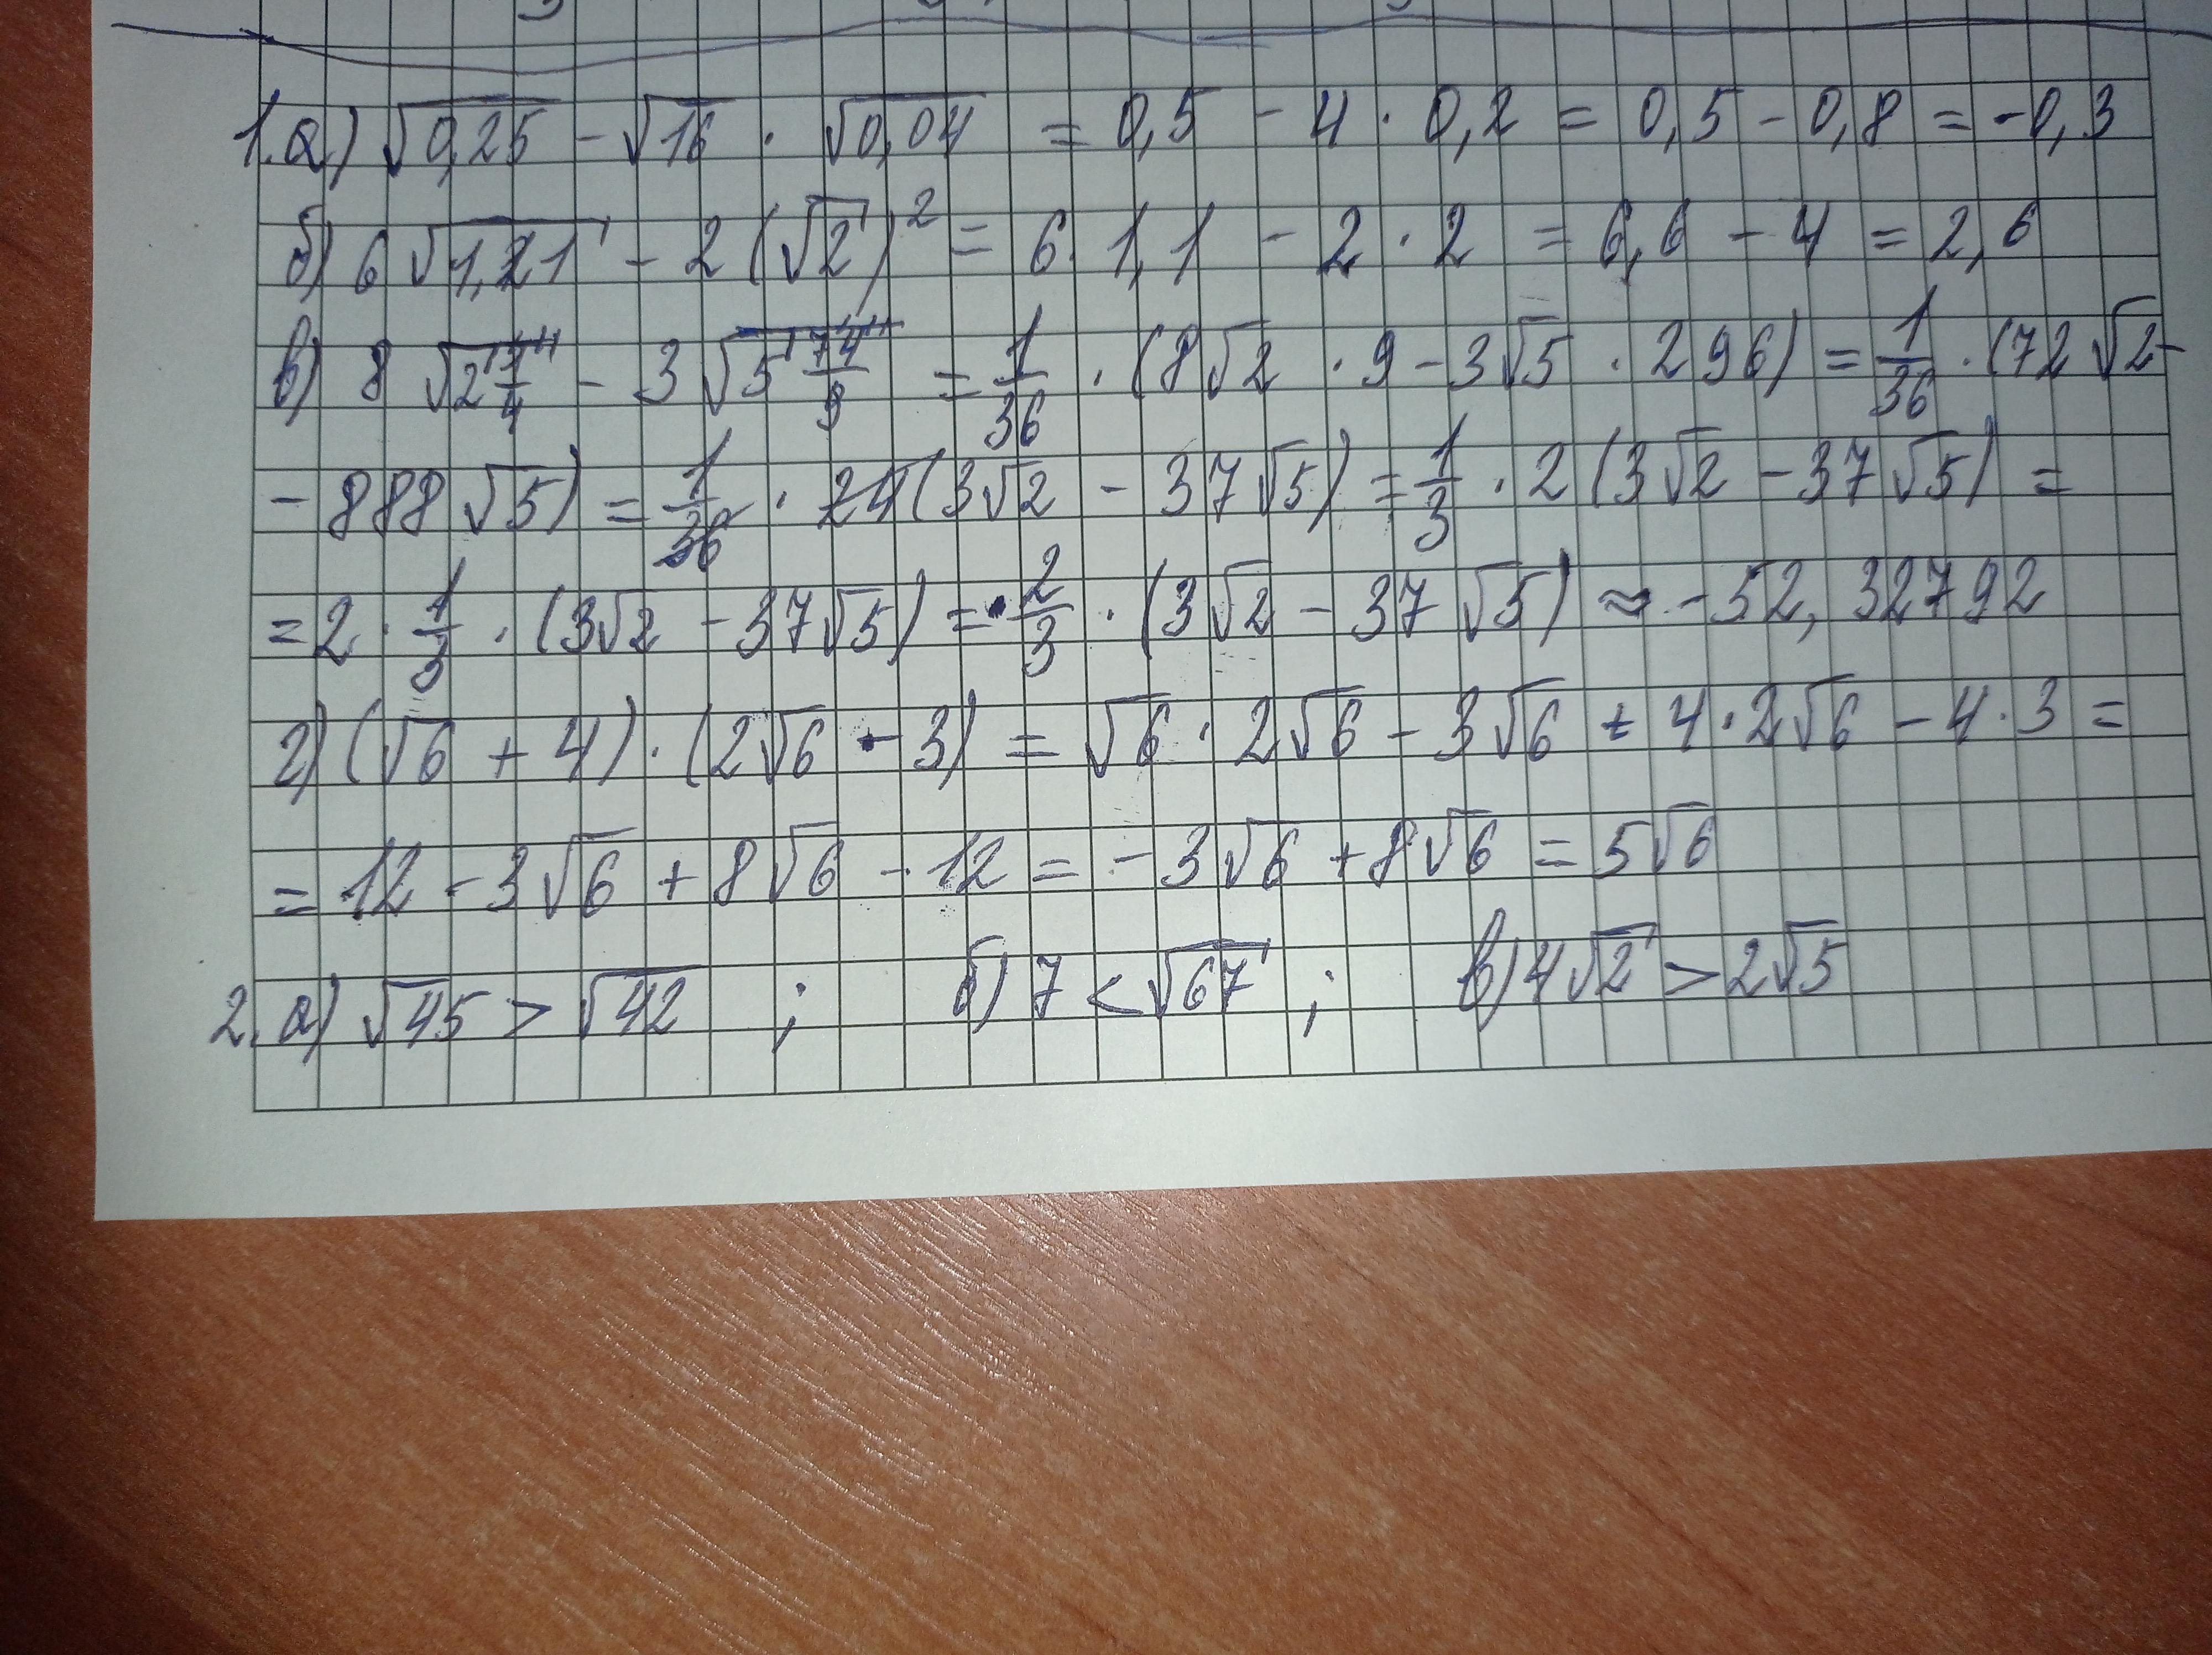 1. а) √0,25 - √16 · √0,04 = 0,5 - 4 · 0,2 = 0,5 - 0,8 = -0,3
б) 6 √1,21 - 2 (√2)² = 6 · 1,1 - 2 · 2 = 6,6 - 4 = 2,6
в) 8 √2 1/4 - 3 √5 74/9 = 1/36 · (8√2 · 9 - 3√5 · 296) = 1/36 · (72√2 -
- 888 √5) = 1/36 · 24 (3√2 - 37√5) = 1/3 · 2 (3√2 - 37√5) =
= 2 · 1/3 · (3√2 - 37√5) = 2/3 · (3√2 - 37√5) ≈ -52,32792
г) (√6 + 4) · (2√6 - 3) = √6 · 2√6 - 3√6 + 4 · 2√6 - 4 · 3 =
= 12 - 3√6 + 8√6 - 12 = -3√6 + 8√6 = 5√6
2. а) √45 > √42 ; б) 7 < √67 ; в) 4√2 > 2√5